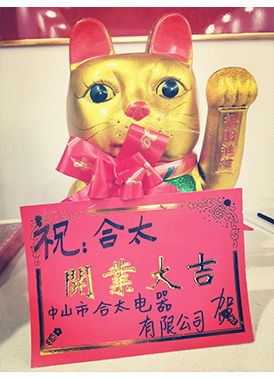 招財進寶
祝：合太
開業大吉
中山市合太电器
有限公司 贺